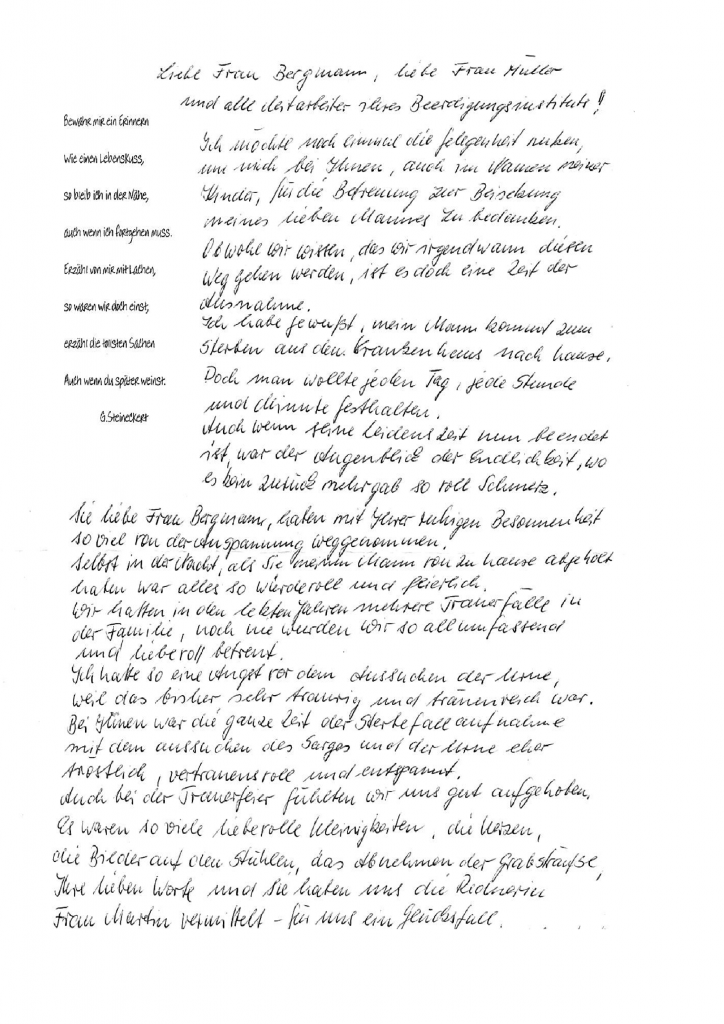 Liebe Frau Bergmann, liebe Frau Müller
und alle Mitarbeiter Ihres Beerdigungsinstituts!
Bewahr mir ein Erinnern
wie einen Lebenskuss,
so bleib ich in der Nähe,
auch wenn ich fortgehen muss.
Erzähl von mir mit Lachen,
so waren wir doch einst,
erzähl die tollsten Sachen
Auch wenn du später weinst.
G. Steineckert
Ich möchte noch einmal die Gelegenheit nutzen,
um mich bei Ihnen, auch im Namen meiner
Kinder, für die Betreuung zur Beisetzung
meines lieben Mannes zu bedanken.
Obwohl wir wissen, das wir irgendwann diesen
Weg gehen werden, ist es doch eine Zeit der
Ausnahme.
Ich habe gewußt, mein Mann kommt zum
Sterben aus dem Krankenhaus nach hause.
Doch man wollte jeden Tag, jede Stunde
und Minute festhalten.
Auch wenn seine Leidenszeit nun beendet
ist, war der Augenblick der Endlichkeit, wo
es kein zurück mehr gab so voll Schmerz.
Sie liebe Frau Bergmann, haben mit Ihrer ruhigen Besonnenheit
so viel von der Anspannung weggenommen.
Selbst in der Nacht, als Sie meinen Mann von zu hause abgeholt
haben war alles so würdevoll und feierlich.
Wir hatten in den letzten Jahren mehrere Trauerfälle in
der Familie, noch nie wurden wir so allumfassend
und liebevoll betreut.
Ich hatte so eine Angst vor dem Aussuchen der Urne,
weil das bisher sehr traurig und tränenreich war.
Bei Ihnen war die ganze Zeit der Sterbefallaufnahme
mit dem aussuchen des Sarges und der Urne eher
tröstlich, vertrauensvoll und entspannt.
Auch bei der Trauerfeier fühlten wir uns gut aufgehoben.
Es waren so viele liebevolle Kleinigkeiten, die Herzen,
die Bilder auf den Stühlen, das Abnehmen der Grabsträuße,
Ihre lieben Worte und sie haben uns die Rednerin
Frau Martin vermittelt – für uns ein Glücksfall.